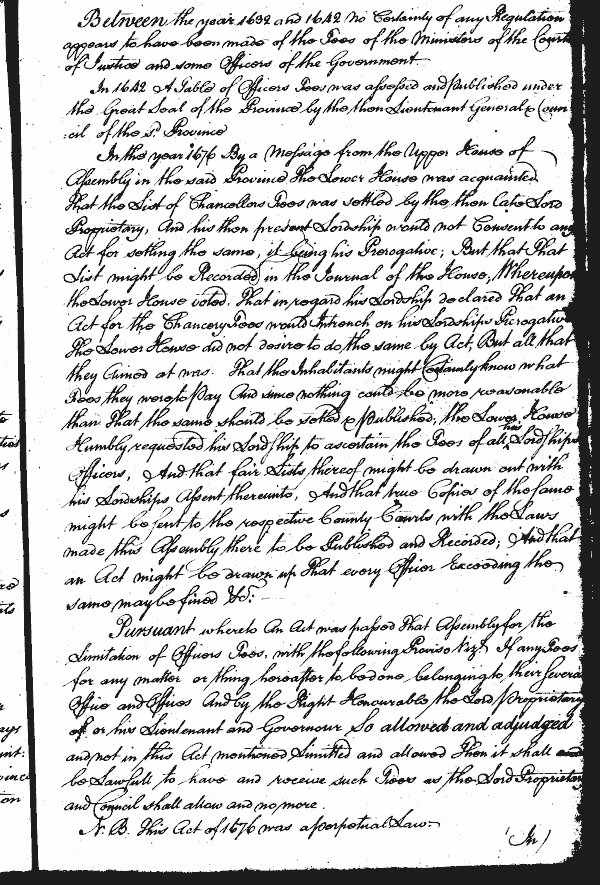 Between the year 1632 and 1642 no Certainty of any Regulation
appears to have been made of the Fees of the Ministers of the Courts
of Justice and some Officers of the Government
In 1642 A Table of Officers Fees was assessed and published under
the Great Seal of the Province by the then Lieutenant General & Coun
:cil of the sd. Province
In the year 1676 By a Message from the Upper House of
Assembly in the said Province The Lower House was acquainted
That the List of Chancellors Fees was settled by the then Late Lord
Proprietary, And his then present Lordship would not Consent to any
Act for setling the same, it being his Prerogative; But that That
List might be Recorded in the Journal of the House, Whereupon
the Lower House voted, That in regard his Lordship declared That an
Act for the Chancery Fees would Intrench on his Lordships Prerogative
The Lower House did not desire to do the same by Act, But all that
they aimed at was. That the Inhabitants might Certainly know what
Fees they were to Pay And since nothing could be more reasonable
than That the same should be setled & Published, the Lower House
Humbly requested his Lordship to ascertain the Fees of all his Lordships
Officers, And that fair Lists thereof might be drawn out with
his Lordships Assent thereunto, And that true Copies of the same
might be sent to the respective County Courts with the Laws
made this Assembly there to be Published and Recorded; And that
an Act might be drawn up That every Officer Exceeding the
same may be fined &c:
Pursuant whereto An Act was passed That Assembly for the
Limitation of Officers Fees, with the following Proviso Vizt. If any Fees
for any matter or thing hereafter to be done belonging to their several
Office and Offices And by the Right Honourable the Lord Proprietary
or his Lieutenant and Governour So allowed and adjudged
and not in this Act mentioned Limitted and allowed Then it shall
be Lawfull to have and receive such Fees as the Lord Proprietary
and Council shall allow and no more.
N. B. This Act of 1676 was a Perpetual Law.
(In)